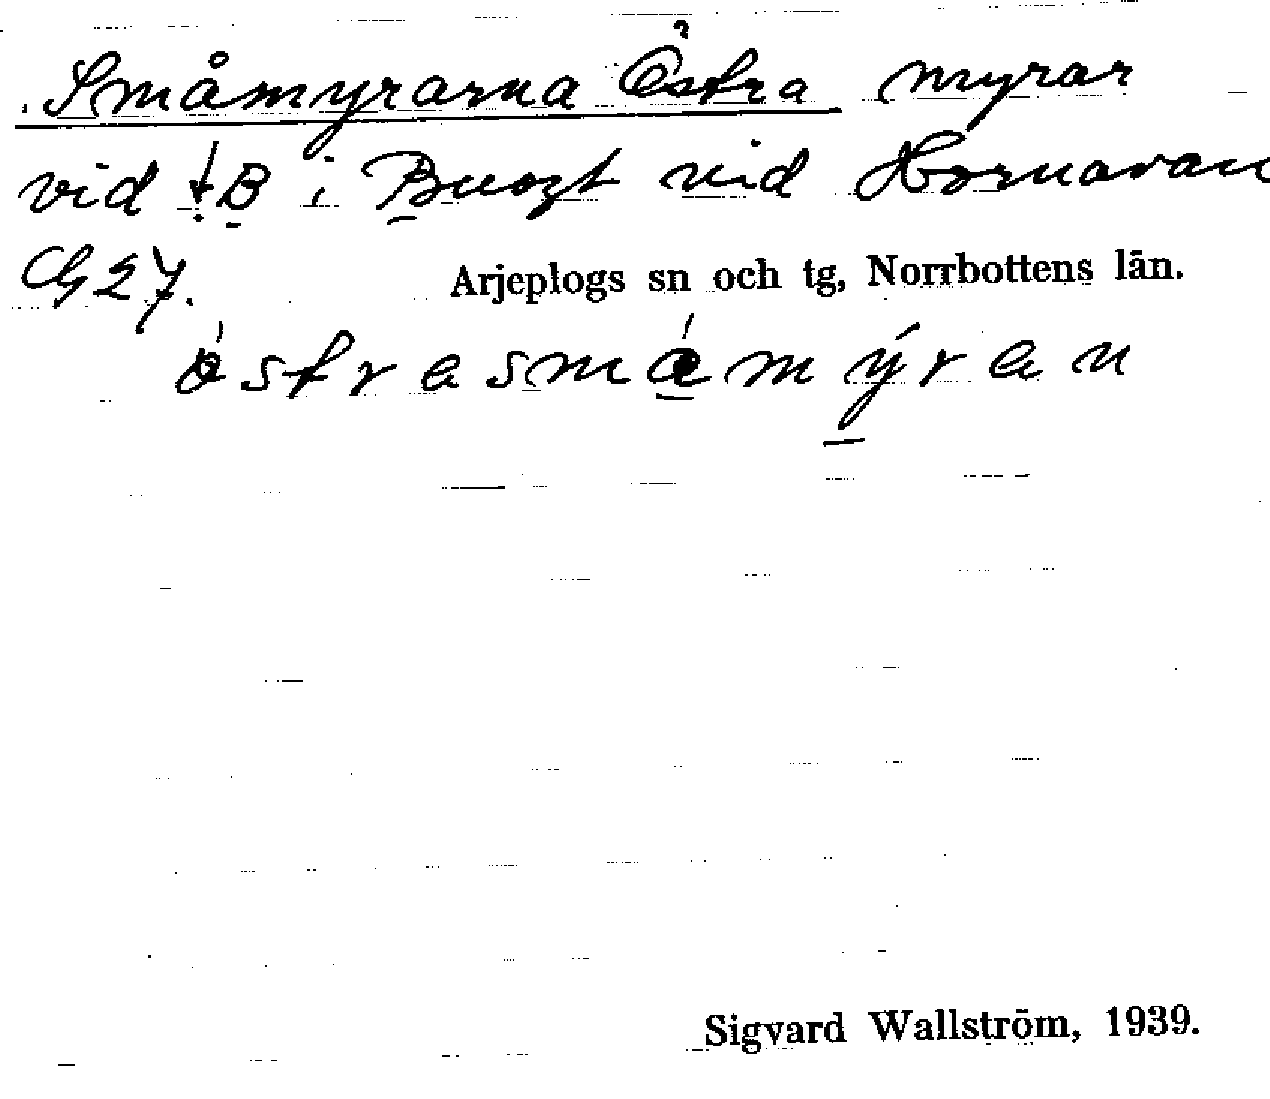 Småmyrarna Östra myrar
vid ↓B i Buozt vid Hornavan
G27.
Arjeplogs sn och tg, Norrbottens län.
östrasmámýran
Sigvard Wallström, 1939.